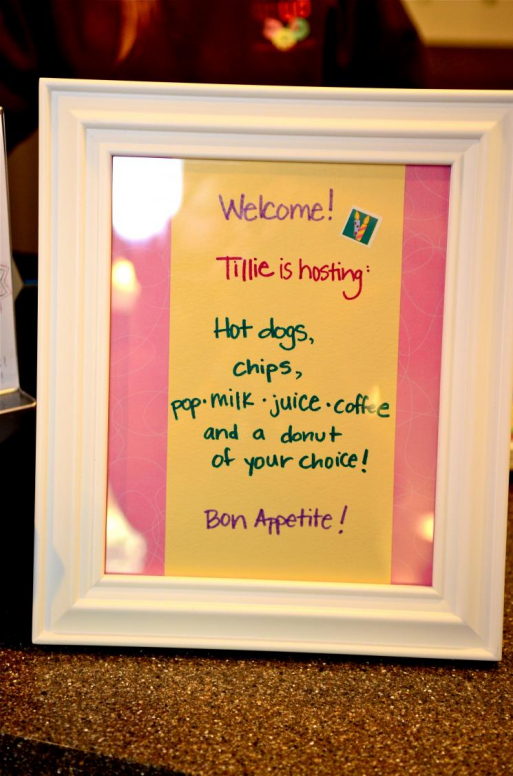 Welcome!
Tillie is hosting:
Hot dogs,
chips,
pop · milk · juice · coffee
and a donut
of your choice!
Bon Appetite!